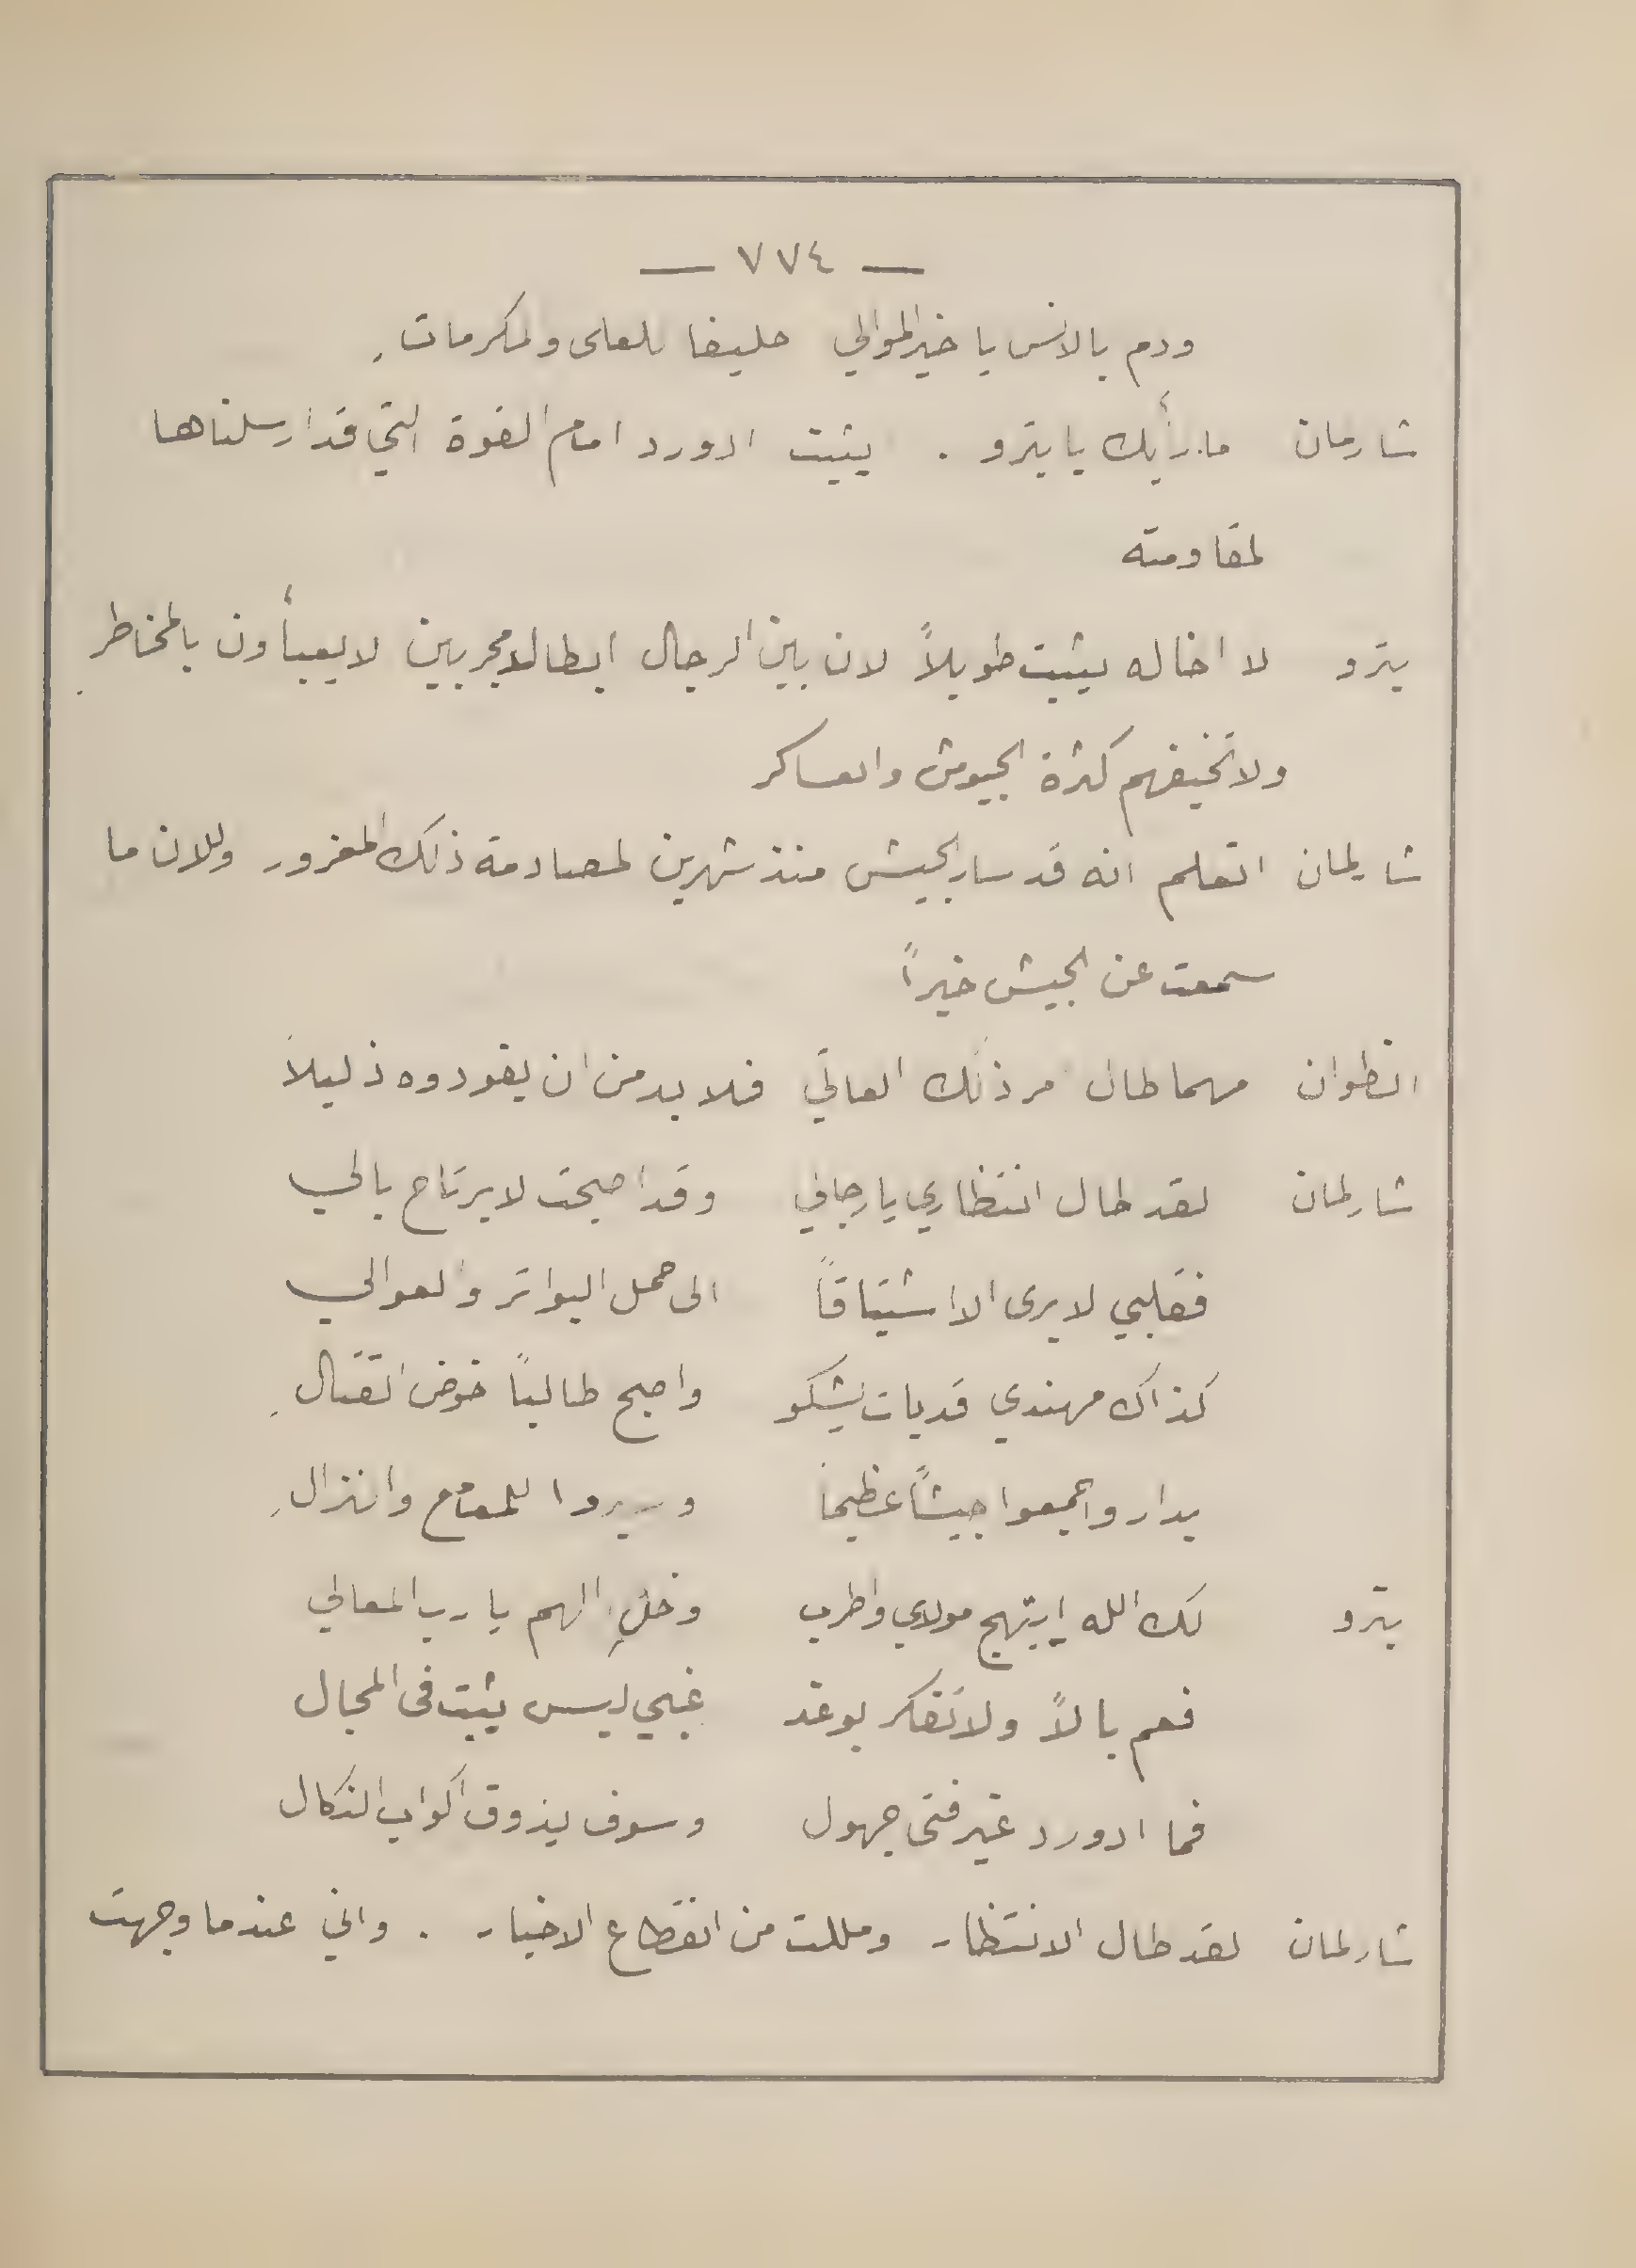 — ٧٧٤ —
ودم بالانس يا خير الموالي حليفا للعلى والمكرمات
شارمان ما رأيك يا پترو . يثبت ادورد امام القوة التي قد ارسلناها
لمقاومته
پترو لا اخاله يثبت طويلاً لان بين الرجال ابطالا مجربين لا يعبأون بالمخاطر
ولا تخيفهم كثرة الجيوش والعساكر
شارلمان اتعلم انه قد سار الجيش منذ شهرين لمصادمة ذلك المغرور وللان ما
سمعت عن الجيش خبراً
انطوان مهما طال امر ذلك العاتي فلا بد من ان يقودوه ذليلاً
شارلمان لقد طال انتظاري يا رجالي وقد اصبحت لا يرتاح بالي
فقلبي لا يرى الا اشتياقاً الى حمل البواتر والعوالي
كذاك مهندي قد بات يشكو واصبح طالباً خوض القتال
بدار واجمعوا جيشاً عظيماً وسيروا للمعامع والنزال
پترو لك الله إبتهج مولاي واطرب وخلِ الهم يا رب المعالي
فعم بالاً ولا تفكر بوغد غبي ليس يثبت في المجال
فما ادورد غير فتى جهول وسوف يذوق اكواب النكال
شارلمان لقد طال الانتظار ومللت من انقطاع الاخبار . واني عندما وجهت